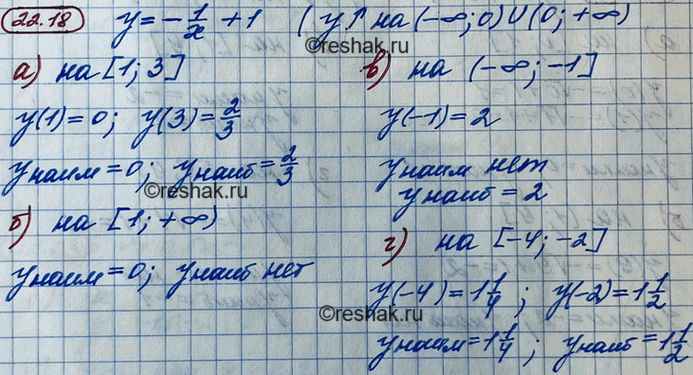 22.18 y = -1/x + 1 (y↑ на (-∞; 0) ∪ (0; +∞)
©reshak.ru
а) на [1; 3]
y(1) = 0; y(3) = 2/3
yнаим = 0; yнаиб = 2/3
©reshak.ru
б) на [1; +∞)
yнаим = 0; yнаиб нет
в) на (-∞; -1]
y(-1) = 2
yнаим нет
yнаиб = 2
г) на [-4; -2]
y(-4) = 1 1/4; y(-2) = 1 1/2
©reshak.ru
yнаим = 1 1/4; yнаиб = 1 1/2